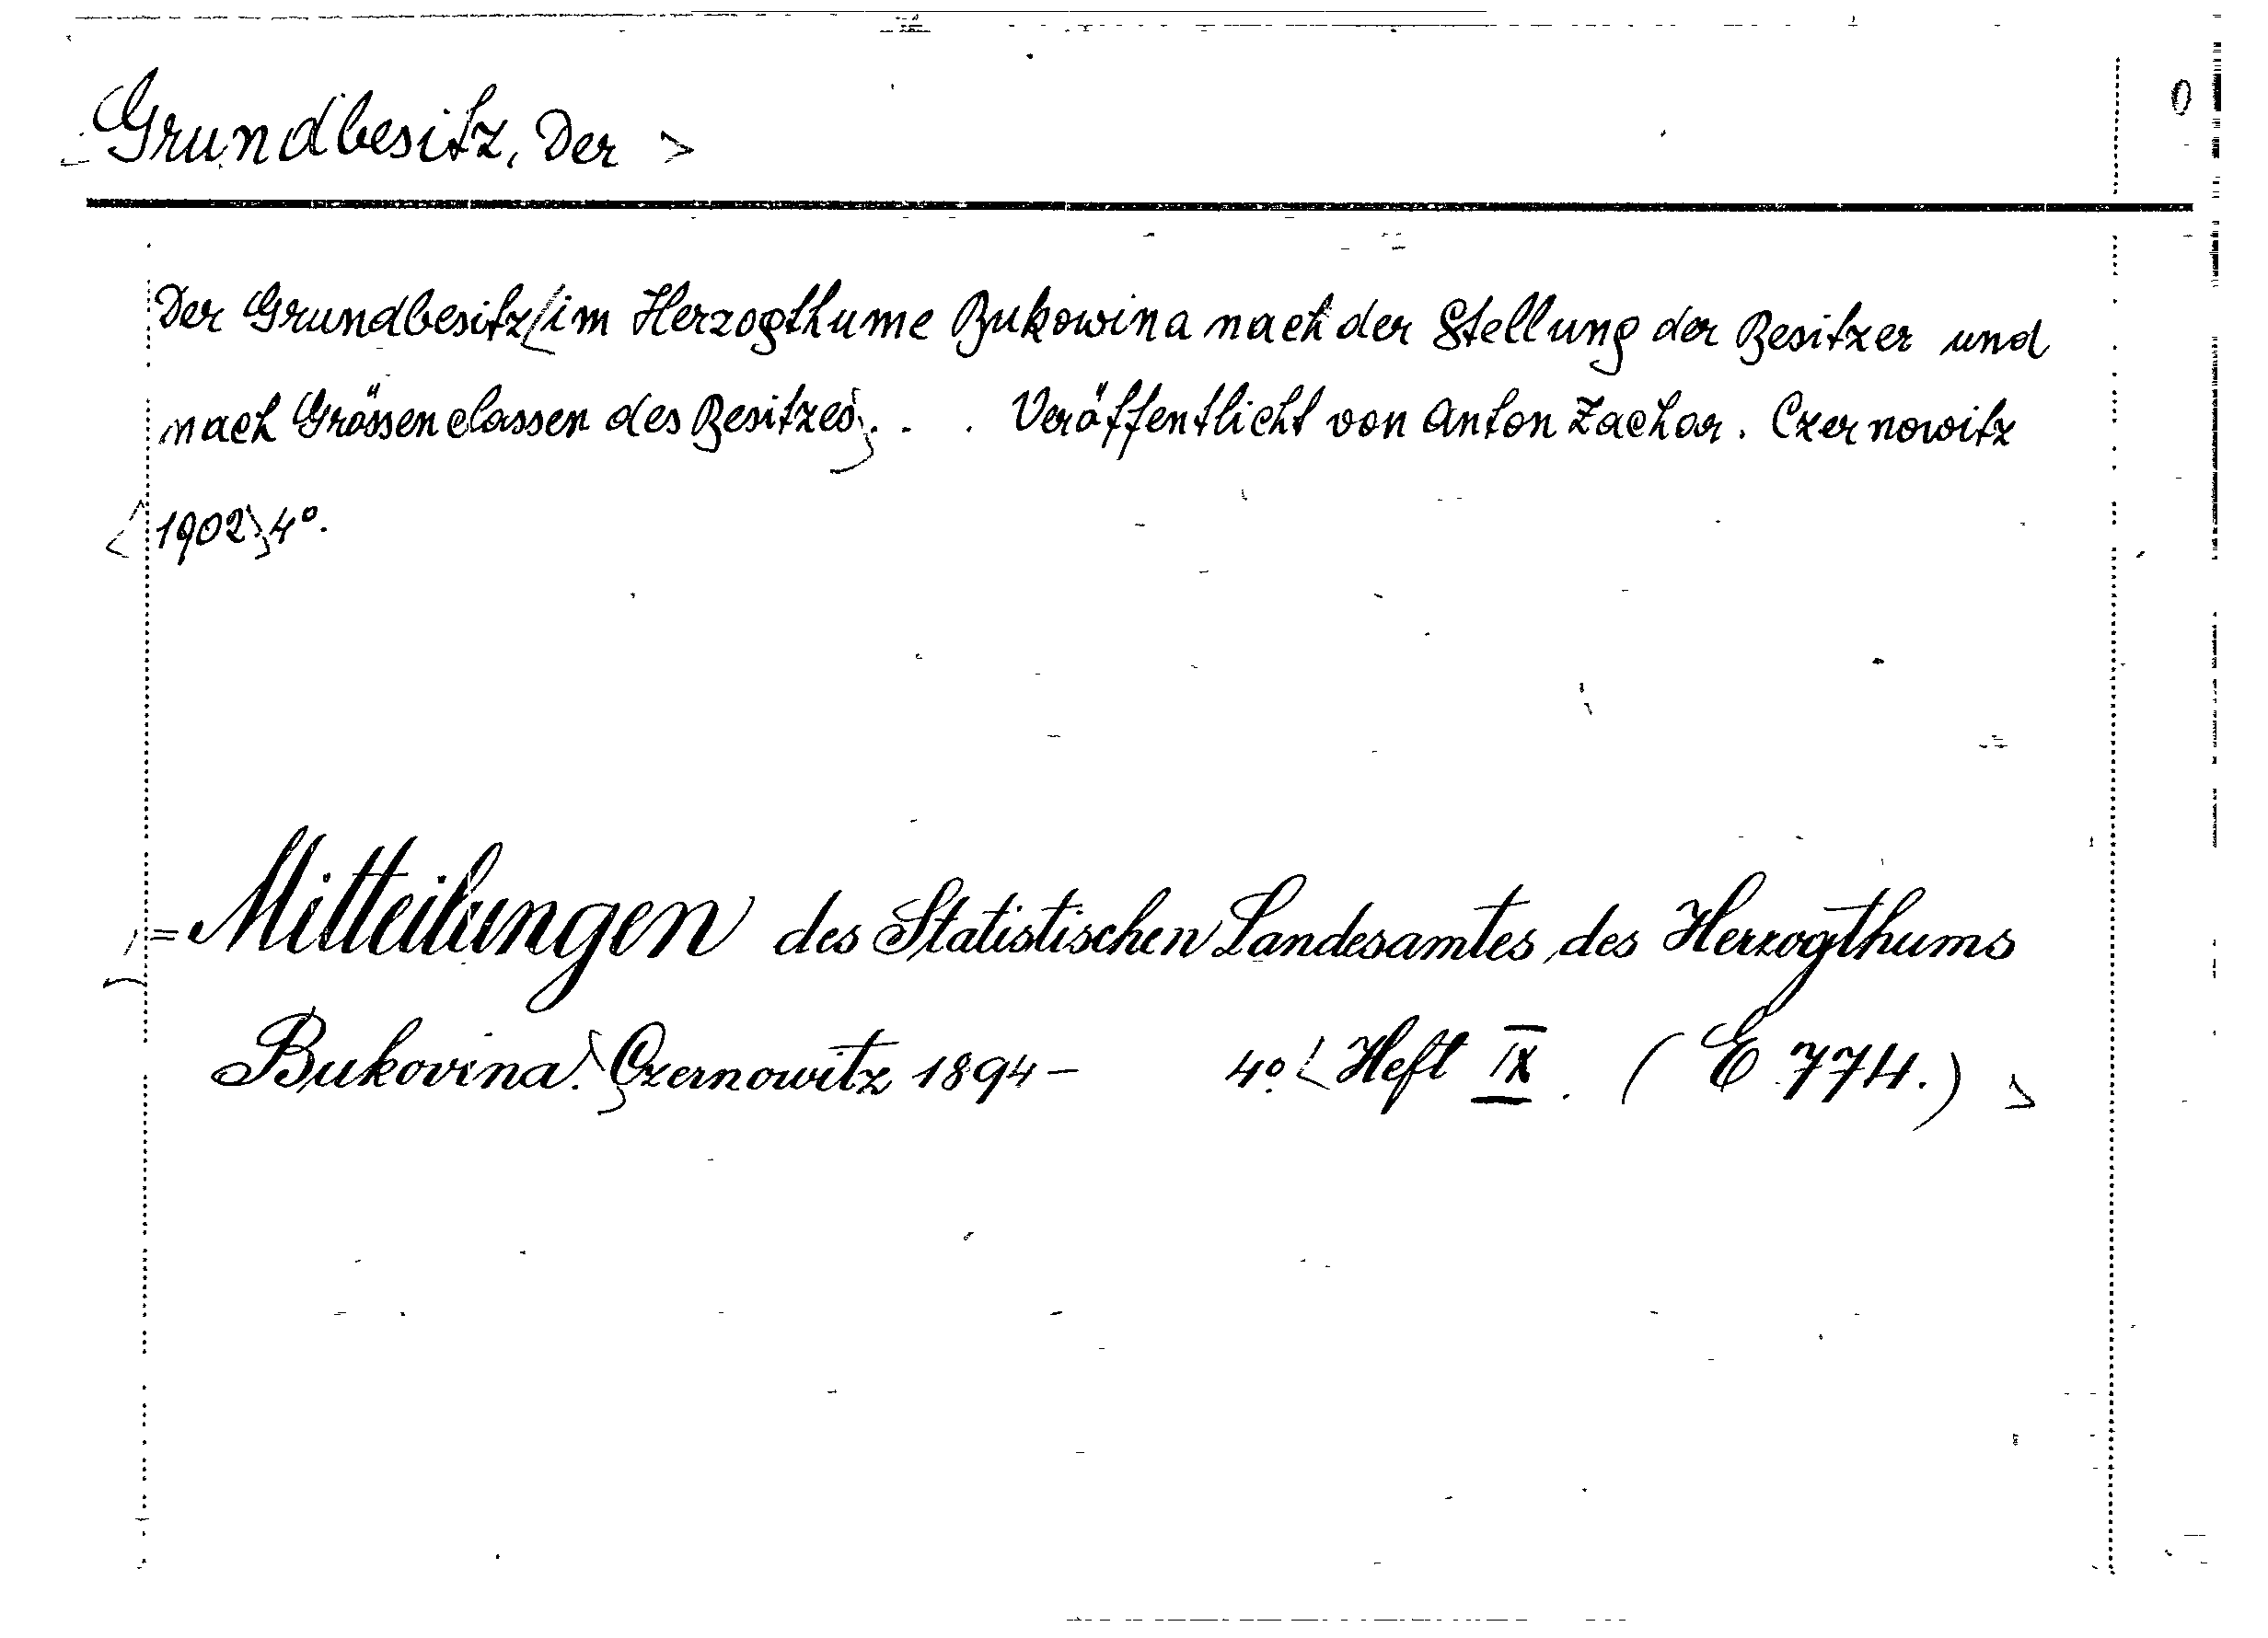 Grundbesitz, Der >
0
Der Grundbesitz <im Herzogthume Bukowina nach der Stellung der Besitzer und
nach Grössenclassen des Besitzes> . . . Veröffentlicht von Anton Zachar. Czernowitz
<1902> 4º.
= Mitteilungen des Statistischen Landesamtes des Herzogthums
Bukovina. > Czernowitz 1894 - 4º. < Heft IX. (E 774.) >